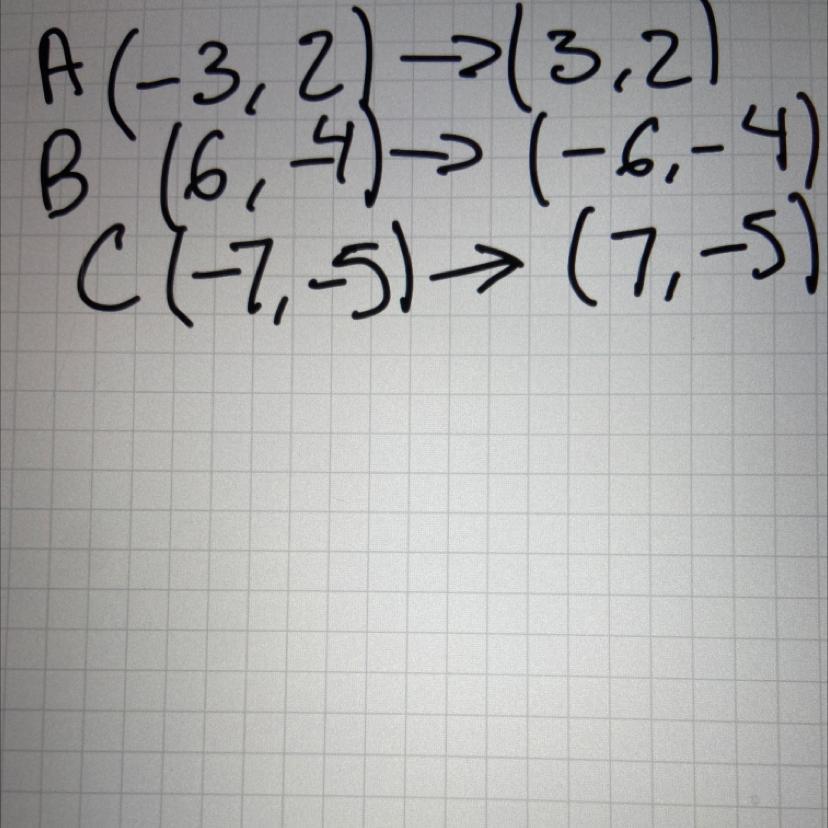 A (-3, 2) → (3, 2)
B (6, -4) → (-6, -4)
C (-7, -5) → (7, -5)